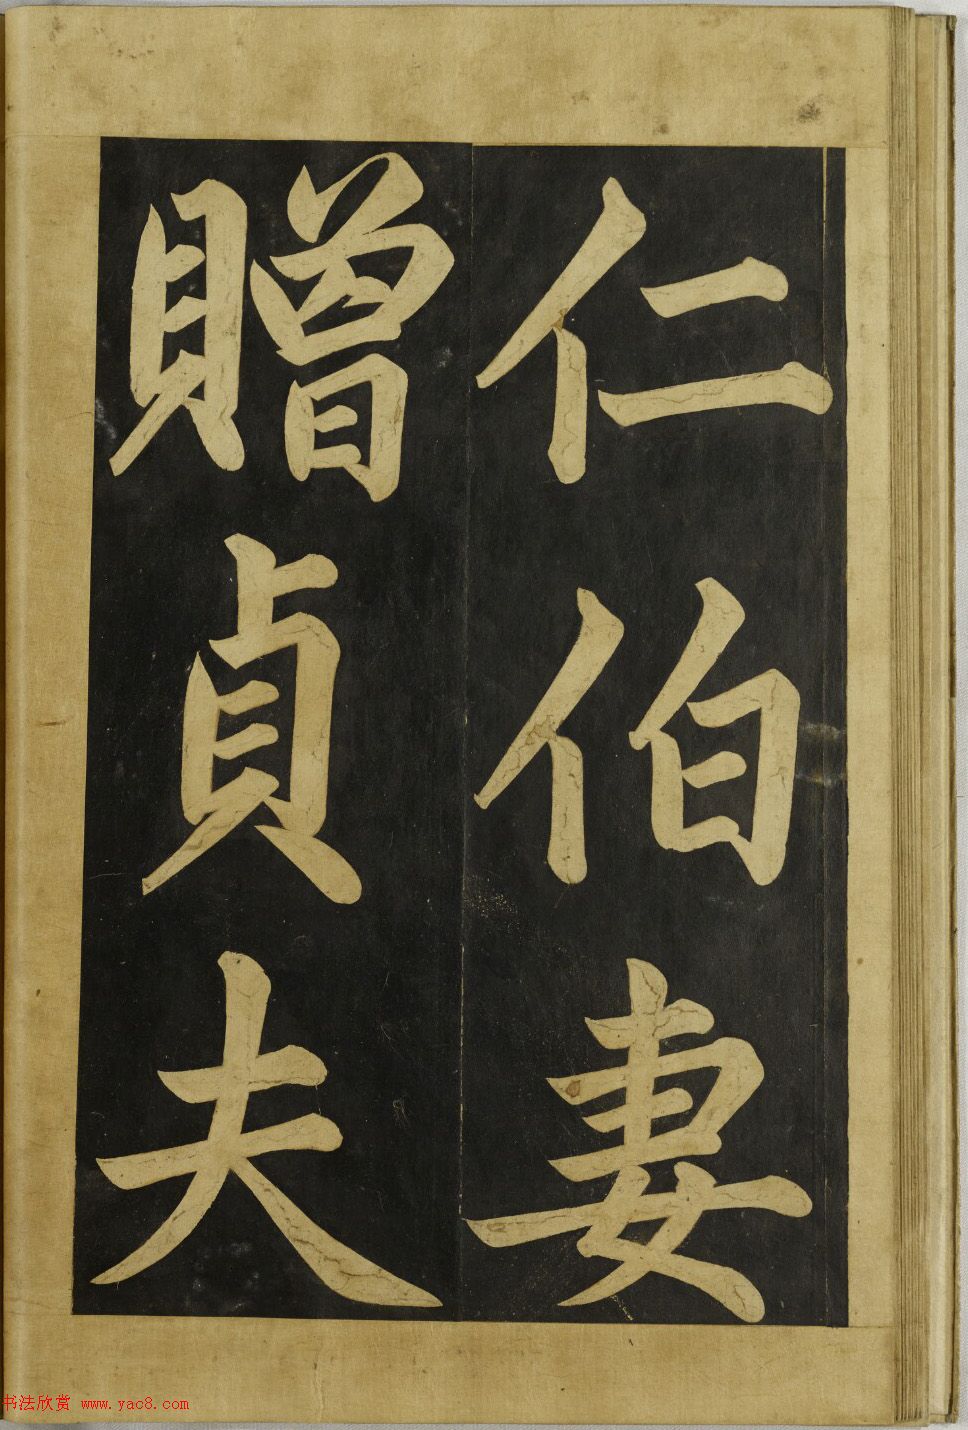 仁伯妻
贈貞夫
书法欣赏 www.yac8.com